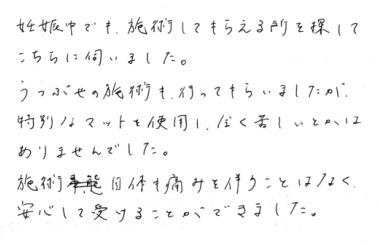 妊娠中でも、施術してもらえる所を探して
こちらに伺いました。
うつぶせの施術も、行ってもらいましたが、
特別なマットを使用し、全く苦しいとかは
ありませんでした。
施術自体も痛みを伴うことはなく、
安心して受けることができました。